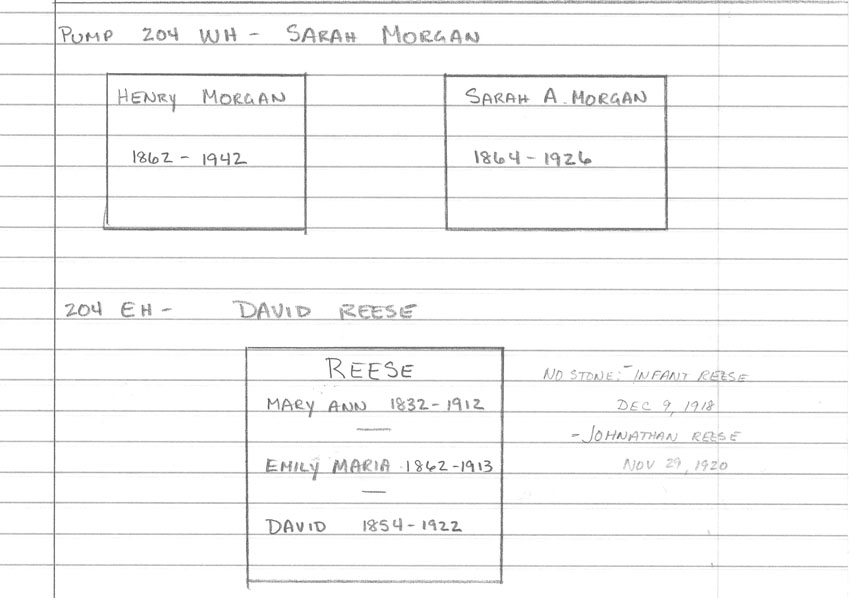 PUMP 204 WH - SARAH MORGAN
HENRY MORGAN
1862 - 1942
SARAH A. MORGAN
1864 - 1926
204 EH - DAVID REESE
REESE
MARY ANN 1832 - 1912
—
EMILY MARIA 1862 - 1913
—
DAVID 1854 - 1922
NO STONE: - INFANT REESE
DEC 9, 1918
- JOHNATHAN REESE
NOV 29, 1920